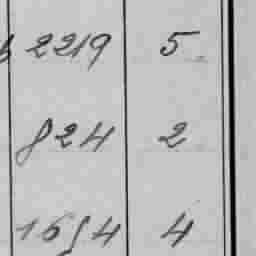 2219 5
824 2
1654 4